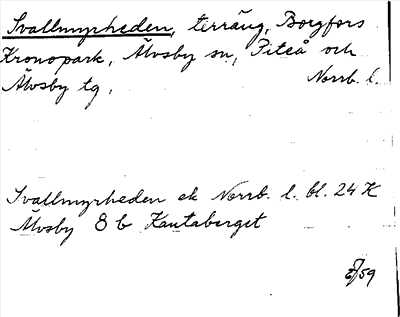 Svallmyrheden, terräng, Borgfors
Kronopark, Älvsby sn, Piteå och
Älvsby tg, Norrb. l.
Svallmyrheden ek Norrb. l. bl. 24 K
Älvsby 8 b Kantaberget
/59